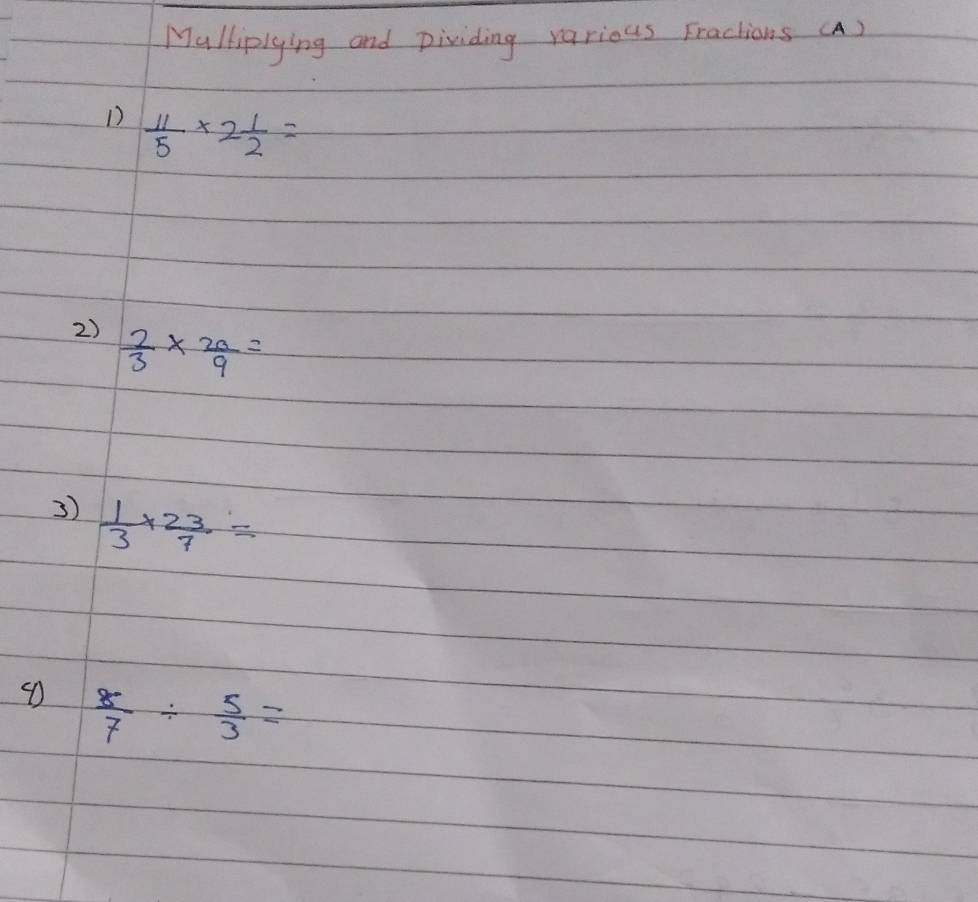 Multiplying and Dividing various Fractions (A)
1) 11/5 × 2 1/2 =
2) 2/3 × 20/9 =
3) 1/3 × 23/7 =
4) 8/7 ÷ 5/3 =